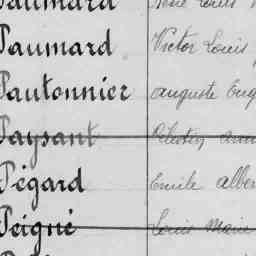 Paumard Victor Louis
Pautonnier Auguste Eug
Paysant Célestin
Pégard Emile Alber
Peigné Louis Marie